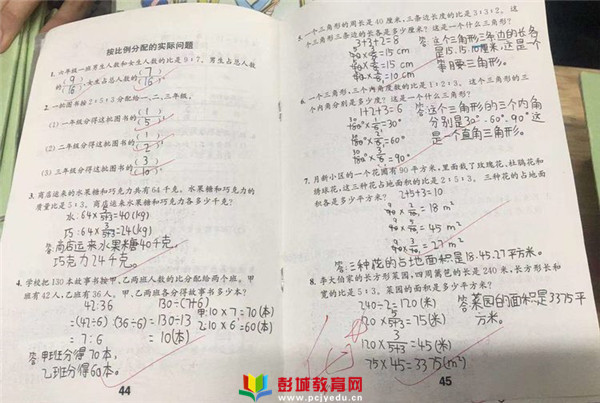 按比例分配的实际问题
1. 六年级一班男生人数和女生人数的比是9:7，男生占总人数
的(9/16)，女生占总人数的(7/16)
2. 一批图书按2:5:3分配给一、二、三年级。
(1) 一年级分得这批图书的(1/5)
(2) 二年级分得这批图书的(1/2)
(3) 三年级分得这批图书的(3/10)
3. 商店运来的水果糖和巧克力共有64千克，水果糖和巧克力的
质量比是5:3。商店运来水果糖和巧克力各多少千克？
水:64×5/5+3=40(kg)
巧:64×3/5+3=24(kg)
答:商店运来水果糖40千克。
巧克力24千克。
4. 学校把130本故事书按甲、乙两班人数的比分配给两个班。甲
班有42人，乙班有36人。甲、乙两班各分得故事书多少本？
42:36 130÷(7+6)
=(42÷6):(36÷6) =130÷13 甲:10×7=70(本)
=7:6 =10(本) 乙:10×6=60(本)
答:甲班分得70本，
乙班分得60本。
44
5. 一个三角形的周长是40厘米，三条边长度的比是3:3:2。这
个三角形三条边的长各是多少厘米？这是一个什么三角形？
3+3+2=8 答:这个三角形三年边的长各
40×3/8=15cm 是15.15.10厘米，这是个
40×3/8=15cm 等腰三角形。
40×2/8=10cm
6. 一个三角形，三个内角度数的比是1:2:3。这个三角形的三
个内角分别是多少度？这是一个什么三角形？
1+2+3=6 答:这个三角形的三个内角
×1/6=30° 分别是30°.60°.90°这
×2/6=60° 是一个直角三角形。
×3/6=90°
7. 月新小区的一个花圃有90平方米，里面栽了玫瑰花、杜鹃花和
绣球花，这三种花占地面积的比是2:5:3。三种花的占地面
积各是多少平方米？ 2+5+3=10
90×2/10=18m²
90×5/10=45m²
90×3/10=27m²
答:三种花的占地面积是18.45.27平方米。
8. 李大伯家的长方形菜园，四周篱笆的长是240米，长方形长和
宽的比是5:3。菜园的面积是多少平方米？
240÷2=120(米) 答:菜园的面积是3375平
120×5/5+3=75(米) 方米。
120×3/5+3=45(米)
75×45=3375(m²)
45
彭城教育网
www.pcjyedu.cn